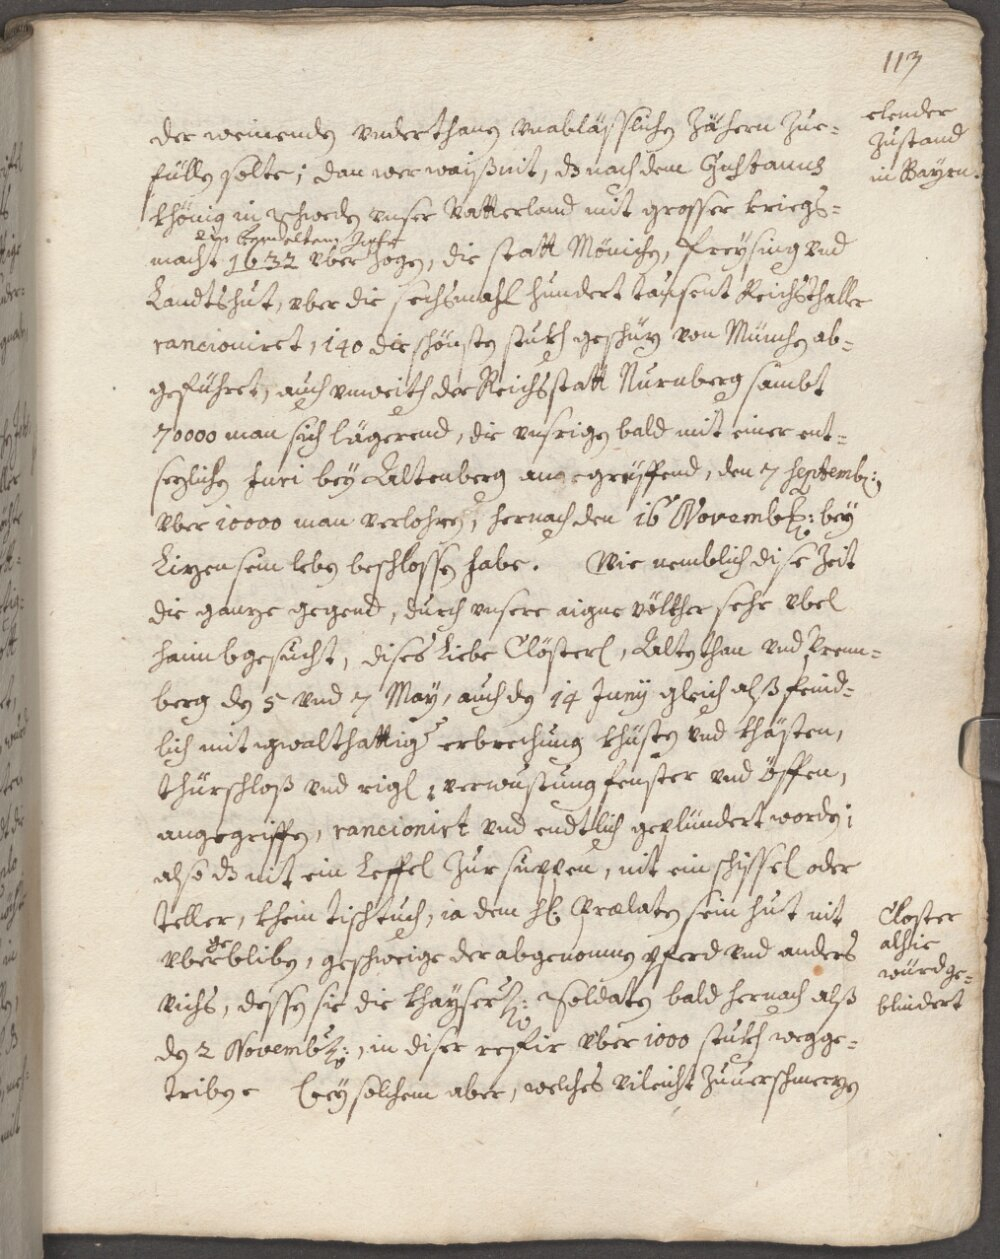 113
der weinenden vnderthanen vnabläßlichen Zähern Zue=
füllen solte; dan wer waiß nit, dz nach dem Gustauus
khönig in Schweden vnser Vatterland mit grosser kriegs=
macht 1632 vberzogen, die statt Mönichen, Freysing vnd
Landtshut, vber die sechsmahl hundert tausent Reichsthaller
rancioniret, 140 die schönsten stukh geschüz von München ab=
geführet, auch vnweith der Reichsstatt Nurnberg sambt
70000 man sich lägerend, die vnsrigen bald mit einer ent=
sezlichen furi bey Altenberg angegryffend, den 7 Septemb:
vber 10000 man verlohren, hernach den 16 Novemb: bey
Lizen sein leben beschlossen habe. Wie nemblich dise Zeit
die ganze gegend, durch vnsere aigne völkher sehr vbel
haimbgesucht, dises Liebe Clösterl, Altenthan vnd Brenn=
berg den 5 vnd 7 May, auch den 14 Juny gleich alß feind=
lich mit gwalthattiger erbrechung khüsten vnd khästen,
thürschloß vnd rigl, verwustung fenster vnd öffen,
angegriffen, rancionirt vnd endtlich geplündert worden;
also dz nit ein Leffel Zur suppen, nit ein schissel oder
teller, khein tischtuch, ia dem H: Prælaten sein hut nit
vbergebliben, geschweige der abgenommen pferd vnd anders
vichs, dessen sie die khayser: Soldaten bald hernach alß
den 2 Novemb:, in diser refir vber 1000 stukh wegge=
triben. bey solchem aber, welches vileicht Zuuerschmerzen
elender
Zustand
in Bayrn.
Closter
alhie
würd ge=
blindert